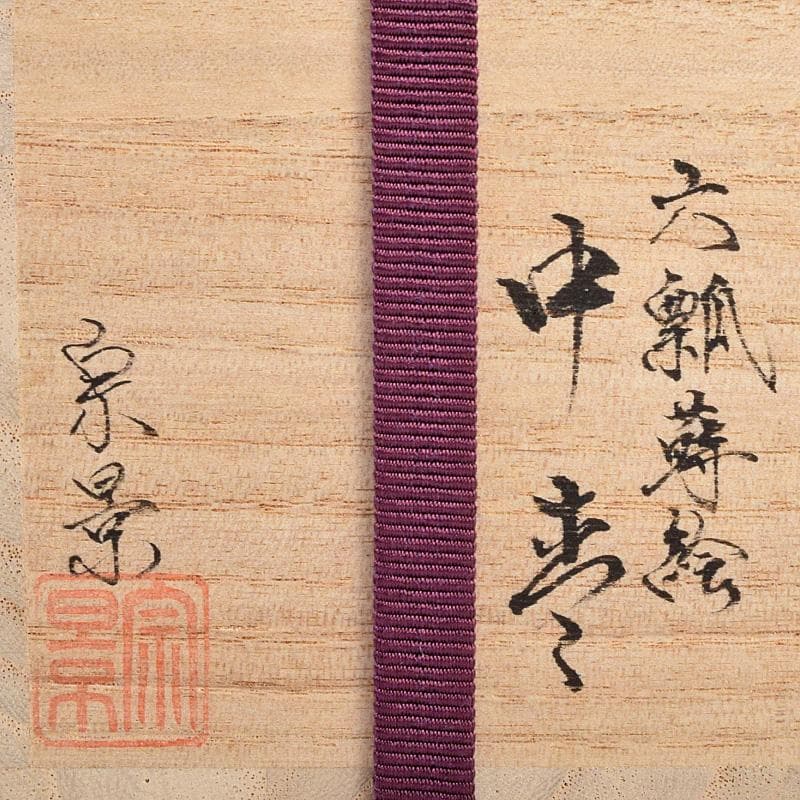 六瓢蒔絵
中棗
宗景
宗景